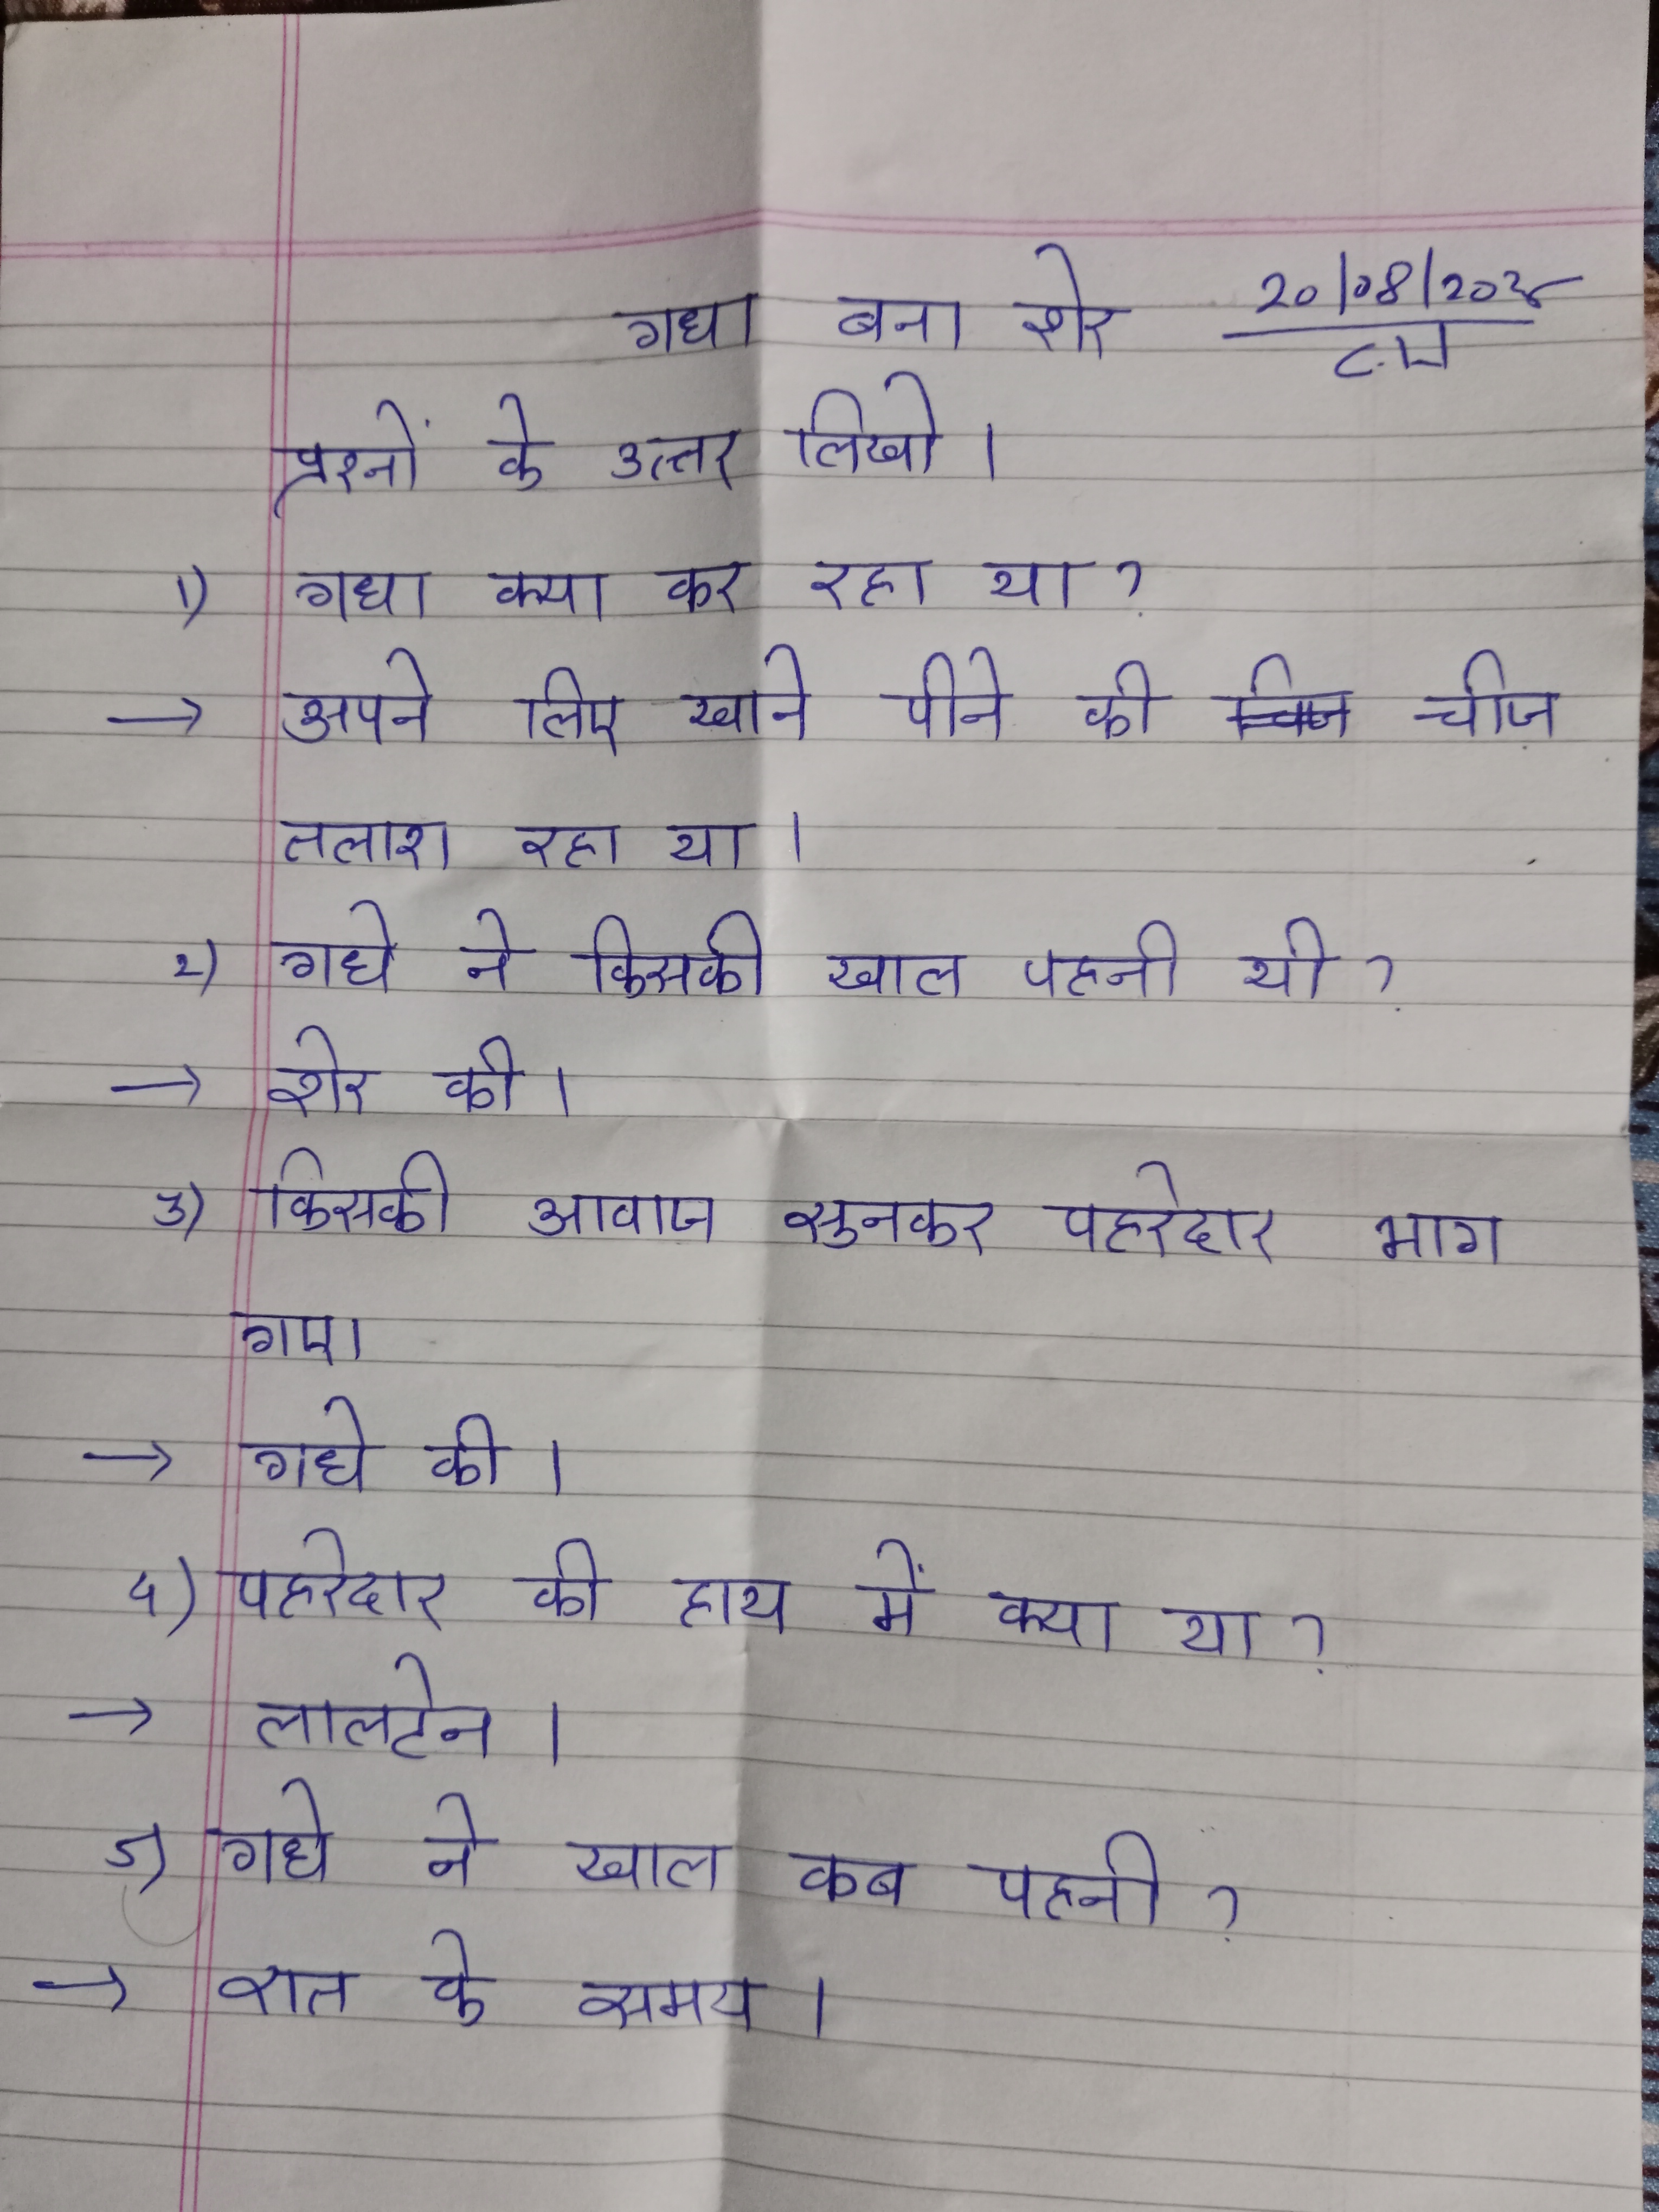 गधा बना शेर 20/08/2025
C.W
प्रश्नों के उत्तर लिखो।
1) गधा क्या कर रहा था?
→ अपने लिए खाने पीने की चीज
तलाश रहा था।
2) गधे ने किसकी खाल पहनी थी?
→ शेर की।
3) किसकी आवाज सुनकर पहरेदार भाग
गए।
→ गधे की।
4) पहरेदार की हाथ में क्या था?
→ लालटेन।
5) गधे ने खाल कब पहनी?
→ रात के समय।